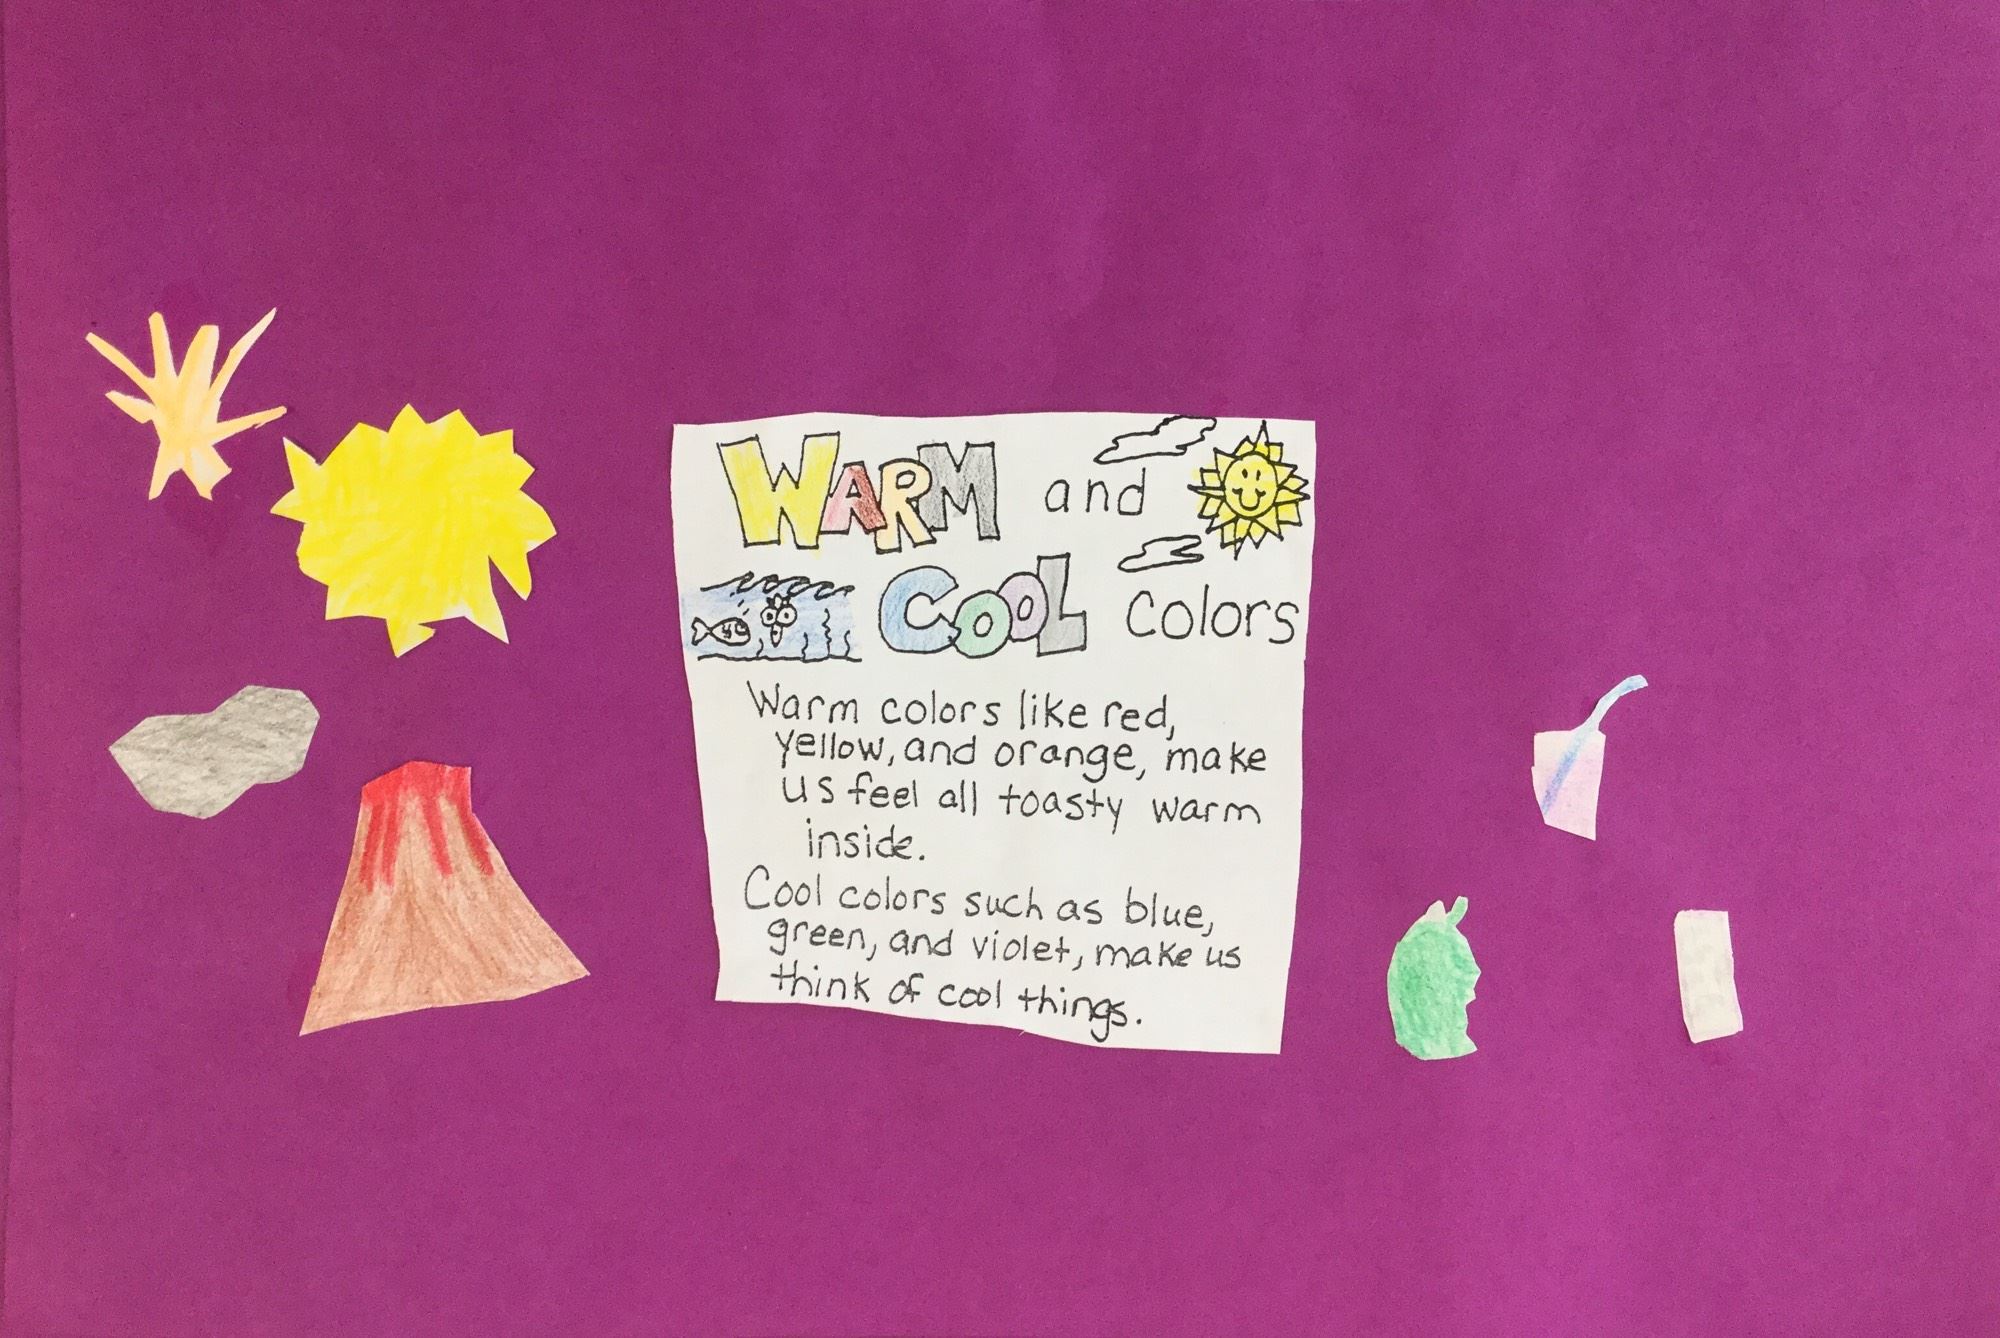 WARM and
COOL colors
Warm colors like red,
yellow, and orange, make
us feel all toasty warm
inside.
Cool colors such as blue,
green, and violet, make us
think of cool things.